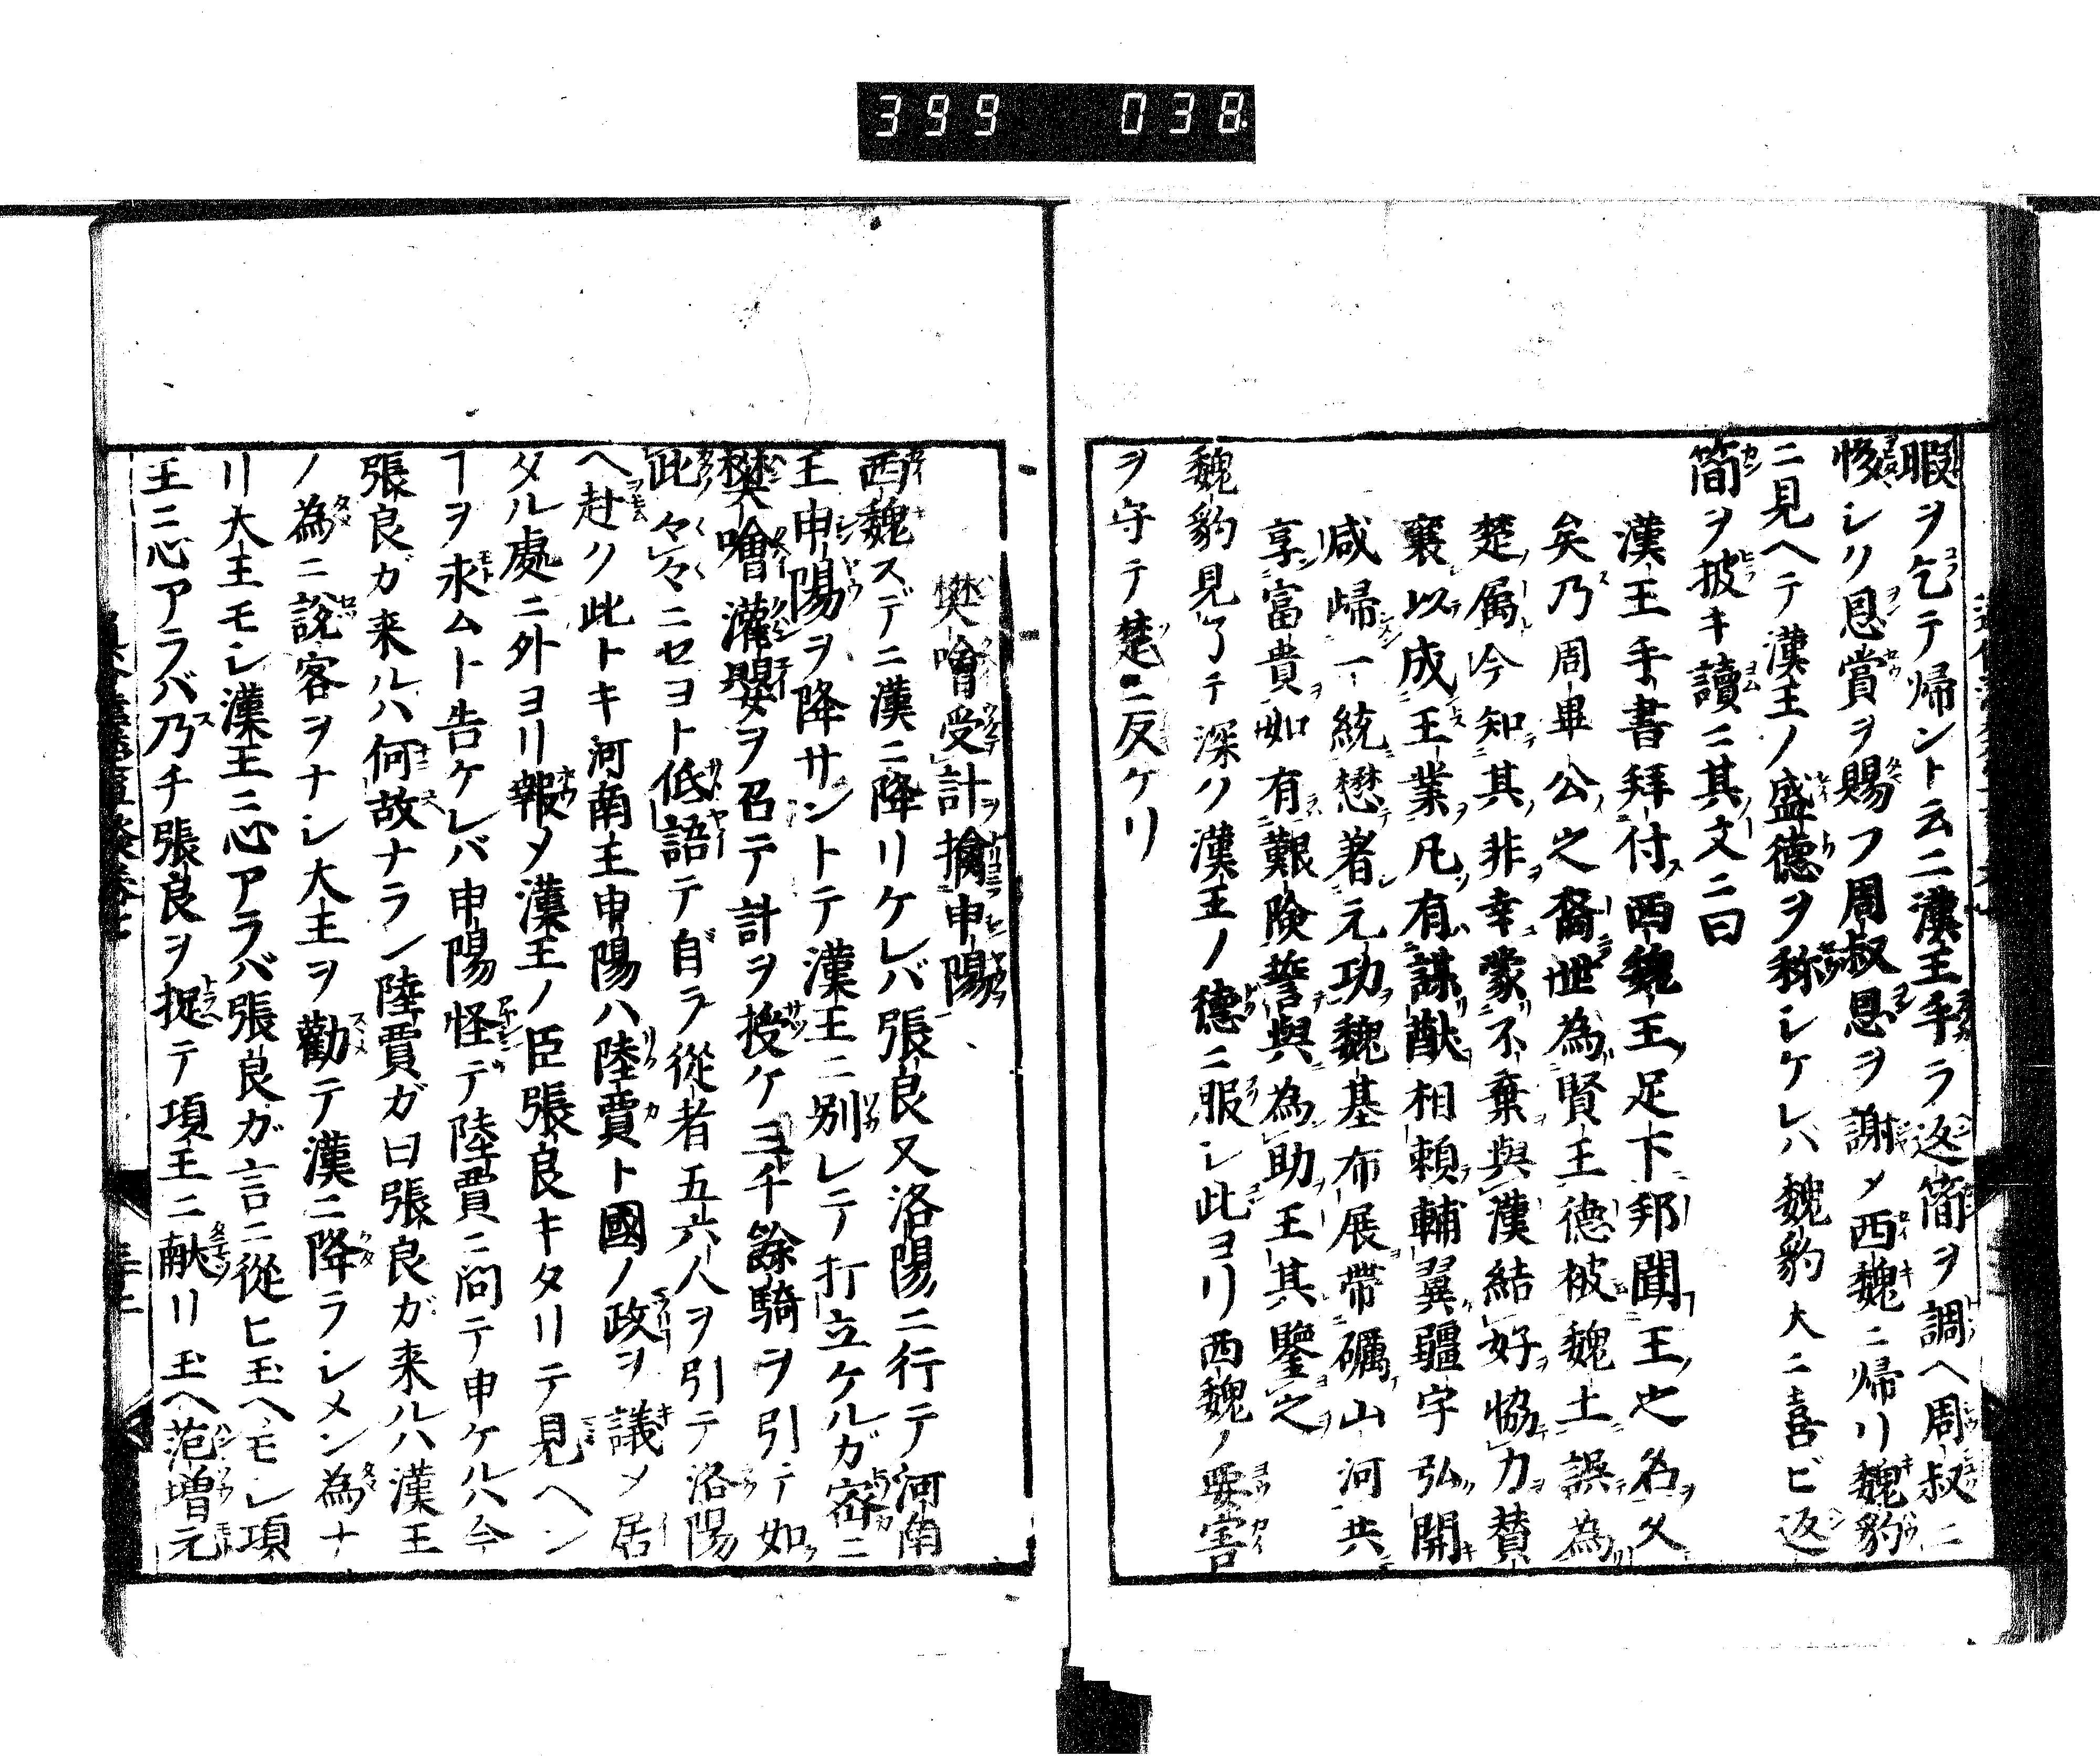 399 038
暇ヲ乞テ帰ント云ニ漢王手ラ返簡ヲ調ヘ周叔ニ
恩賞ヲ賜フ周叔恩ヲ謝メ西魏ニ帰リ魏豹
ニ見ヘテ漢王ノ盛德ヲ称シケレハ魏豹大ニ喜ビ返
簡ヲ披キ讀ニ其文ニ曰
漢王手書拜付西魏王足下邦聞王之名久
矣乃周畢公之裔世為賢王德被魏土誤為
楚属今知其非幸蒙不棄與漢結好恊力賛
襄以成王業凡有謀猷相頼輔翼疆宇弘開
咸帰一統懋著元功魏基布展帯礪山河共
享富貴如有艱険誓與為助王其鑒之
魏豹見了テ深ク漢王ノ德ニ服シ此ヨリ西魏ノ要害
ヲ守テ楚ニ反ケリ
樊噲受計擒申陽
西魏スデニ漢ニ降リケレバ張良又洛陽ニ行テ河南
王申陽ヲ降サントテ漢王ニ別レテ打立ケルガ密ニ
樊噲灌嬰ヲ召テ計ヲ授ケ三千餘騎ヲ引テ如
此々々ニセヨト低語テ自ラ從者五六人ヲ引テ洛陽
ヘ赴ク此トキ河南王申陽ハ陸賈ト國ノ政ヲ議メ居
タル處ニ外ヨリ報メ漢王ノ臣張良キタリテ見ヘン
ヿヲ求ムト告ケレバ申陽怪テ陸賈ニ問テ申ケルハ今
張良ガ来ルハ何故ナラン陸賈ガ曰張良ガ来ルハ漢王
ノ為ニ說客ヲナシ大王ヲ勸テ漢ニ降ラシメン為ナ
リ大王モシ漢王ニ心アラバ張良ガ言ニ從ヒ玉ヘモシ項
王ニ心アラバ乃チ張良ヲ捉テ項王ニ献リ玉ヘ范増元